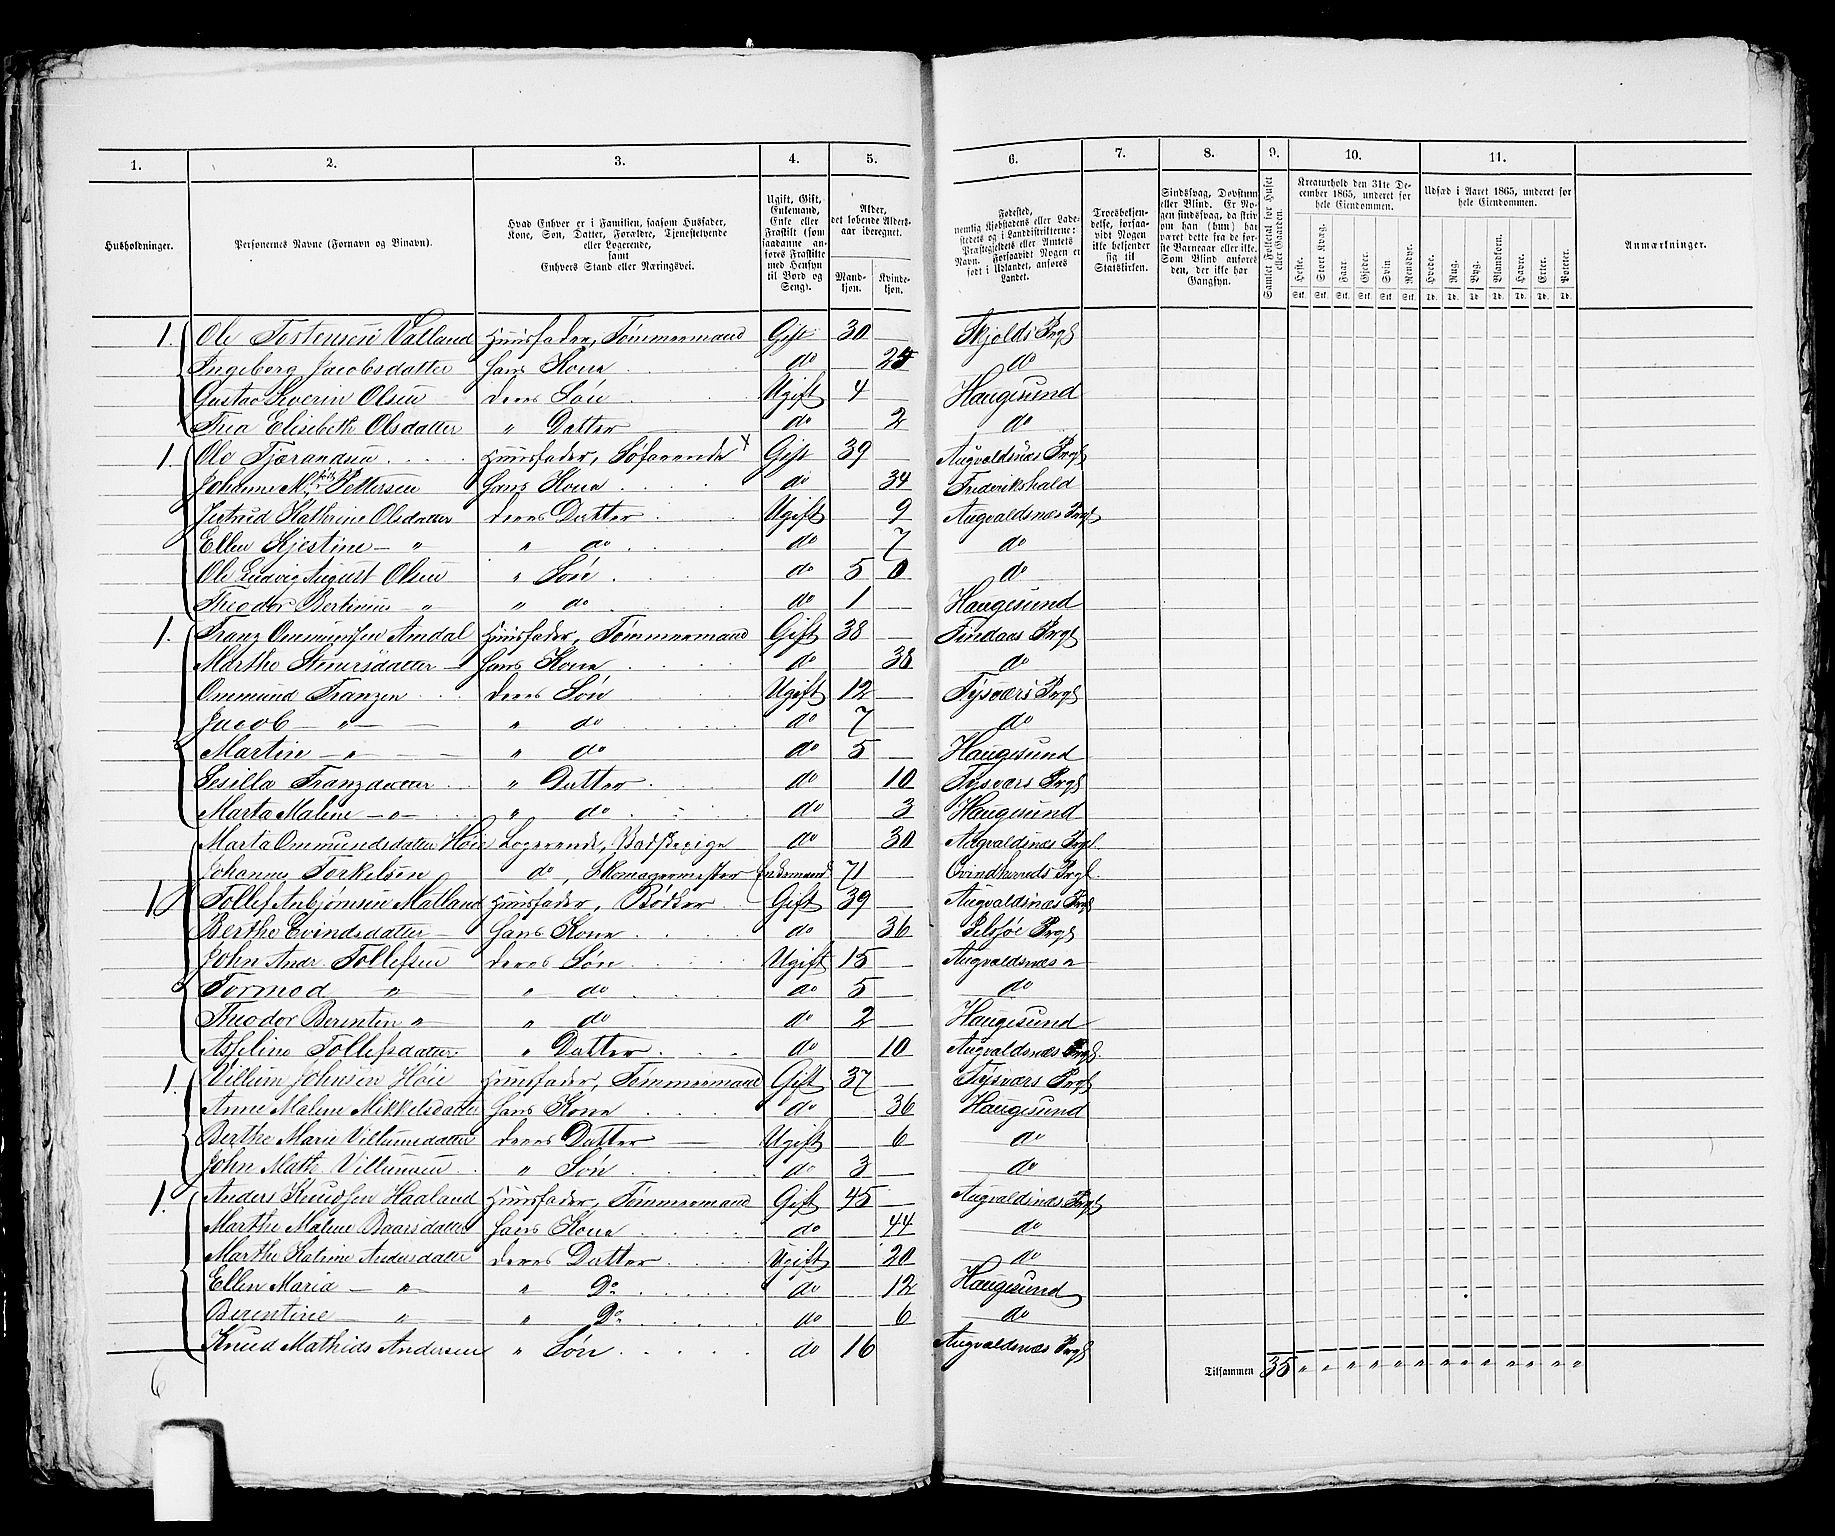 1. 2. 3. 4. 5. 6. 7. 8. 9. 10. 11.
Husholdninger.
Personernes Navne (Fornavn og Binavn).
Hvad Enhver er i Familien, saasom Husfader, Kone, Søn, Datter, Forældre, Tjenestetyende eller Logerende, samt Enhvers Stand eller Næringsvei.
Ugift, Gift, Enkemand, Enke eller Fraskilt (som saadanne anføres Fraskilte med Hensyn til Bord og Seng).
Alder, det løbende Alders-aar iberegnet.
Mand-kjøn. Kvinde-kjøn.
Fødested, nemlig Kjøbstadens eller Ladestedets og i Landdistrikterne: Præstegjeldets eller Amtets Navn. Forsaavidt Nogen er født i Udlandet, anføres Landet.
Troesbekjendelse, forsaavidt Nogen ikke bekjender sig til Statskirken.
Sindssvag, Døvstum eller Blind. Er Nogen sindssvag, da skriv om han (hun) har været dette fra de første Barneaar eller ikke. Som Blind anføres den, der ikke har Gangsyn.
Samlet Folketal for Huset eller Gaarden.
Kreaturhold den 31te December 1865, underet for hele Eiendommen.
Heste. Stort Kvæg. Faar. Gjeder. Svin Rensdyr.
Udsæd i Aaret 1865, underet for hele Eiendommen.
Hvede. Rug. Byg. Blandkorn. Havre. Erter. Poteter.
Anmærkninger.
1. Ole Tostensen Valland Huusfader, Tømmermand Gift 30 Skjolds Prgl
Ingeborg Jacobsdatter hans Kone do 25 do
Gustav Severin Olsen deres Søn Ugift 4 Haugesund
Thea Elisebeth Olsdatter " Datter do 2 do
1. Ole Tjørandsen Huusfader, Søfarende x Gift 39 Augvaldsnæs Prgl
Johanne M. Pettersen hans Kone do 34 Frederikshald
Jertrud Kathrine Olsdatter deres Datter Ugift 9 Augvaldsnæs Prgl
Ellen Kjestine — " " do do 7 do
Ole Ludvig August Olsen " Søn do 5 0 do
Theodor Bertinius — " " do do 1 Haugesund
1. Franz Ommundsen Amdal Huusfader, Tømmermand Gift 38 Findaas Prgl
Marthe Sjursdatter hans Kone do 38 do
Ommund Franzen deres Søn Ugift 12 Tysværs Prgl
Jacob — " — " do do 7 do
Martin — " — " do do 5 Haugesund
Sesilla Franzdatter " Datter do 10 Tysværs Prgl
Marta Malene — " — " do do 3 Haugesund
Marta Ommundsdatter Høie Logerende, do 30 Augvaldsnæs Prgl.
Johannes Torkelsen do, Skomagermester Enkemand 71 Qvindherreds Prgl.
1. Tollef Asbjørnsen Matland Huusfader, Bødker Gift 39 Augvaldsnæs Prgl
Berthe Evindsdatter hans Kone do 36 Prgl
John Andr. Tollefsen deres Søn Ugift 15 Augvaldsnæs "
Tormod " " do do 5 do
Theodor Berenten " " do do 2 Haugesund
Asseline Tollefsdatter " Datter do 10 Augvaldsnæs Prgl.
1. Villum Johnsen Høie Huusfader, Tømmermand Gift 37 Tysværs Prgl
Anne Malene Mikkelsdatter hans Kone do 36 Haugesund
Berthe Marie Villumsdatter deres Datter Ugift 6 do
John Math. Villumsen " Søn do 3 do
1. Anders Knudsen Haaland Huusfader, Tømmermand Gift 45 Augvaldsnæs Prgl
Marthe Malene Baarsdatter hans Kone do 44 do
Marthe Kaline Andersdatter deres Datter Ugift 20 do
Ellen Maria — " " Do do 12 Haugesund
Berentine " " Do do 6 do
Knud Mathias Andersen " Søn do 16 Augvaldsnæs Prgl
6
Tilsammen 35 " " " " " " " " " " " " "